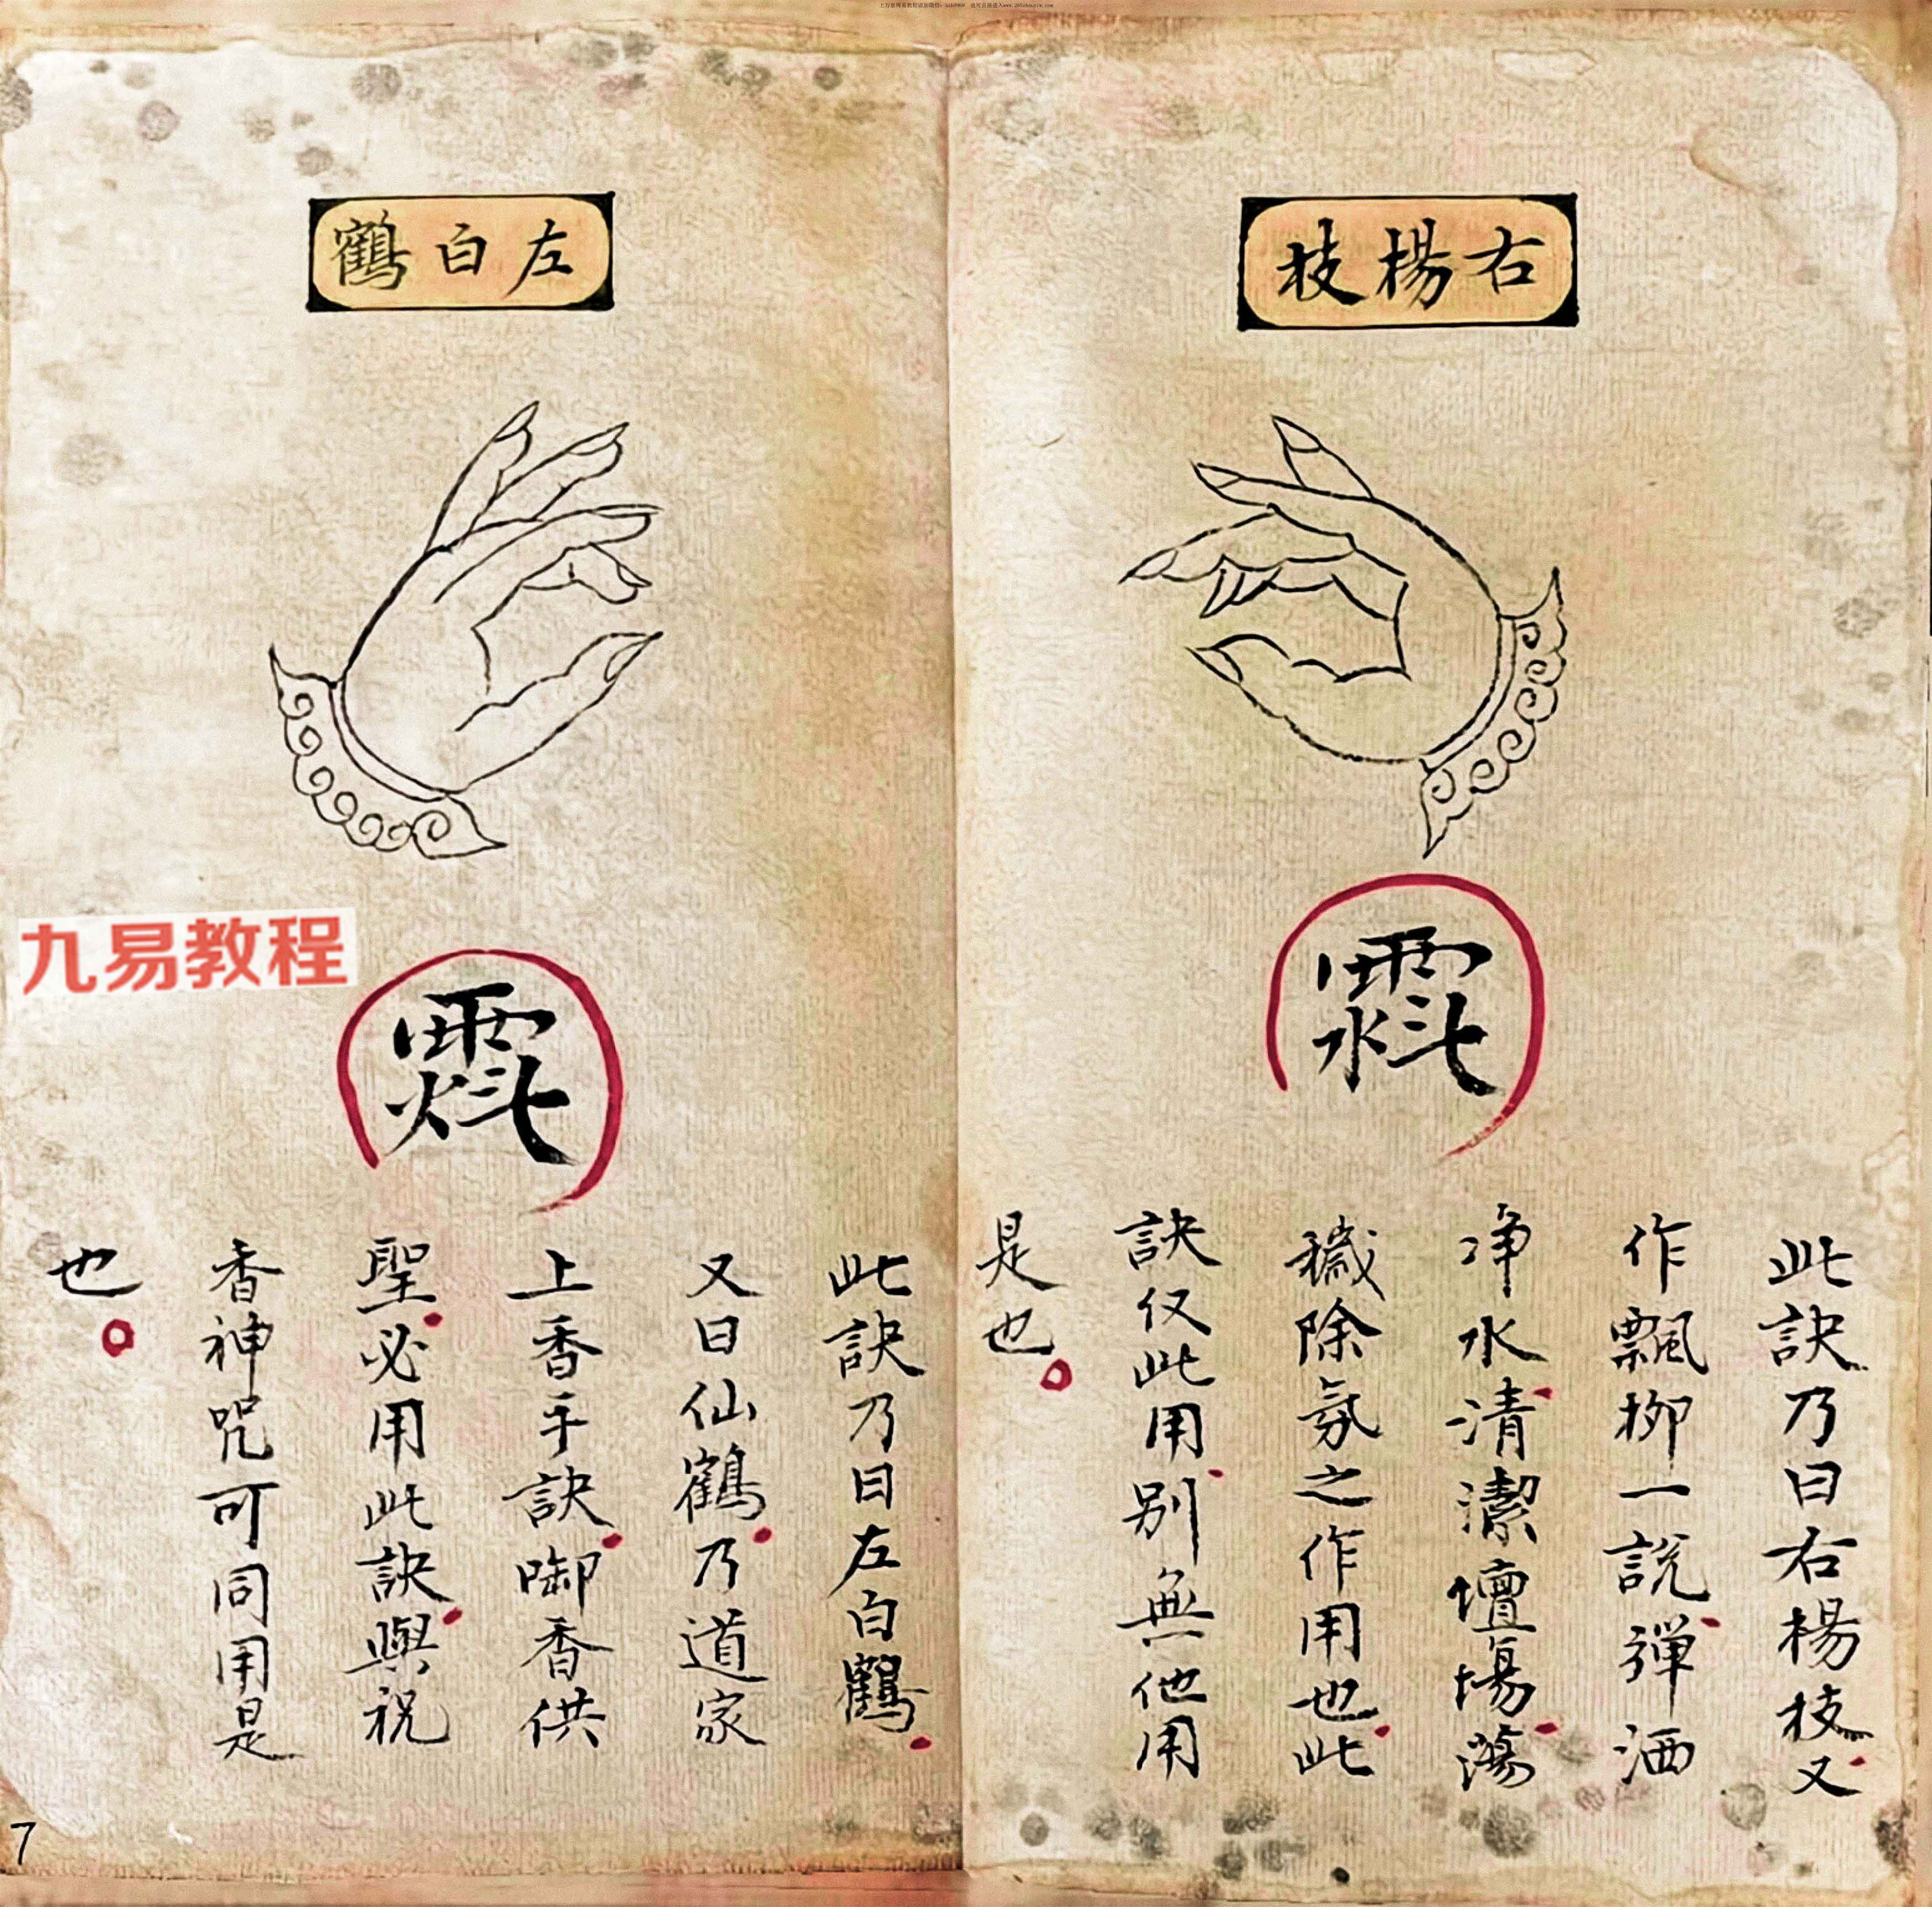 右楊枝
此訣乃曰右楊枝又
作飄柳一說彈洒
净水清潔壇場蕩
穢除氛之作用也此
訣仅此用別無他用
是也。
左白鶴
九易教程
此訣乃曰左白鶴
又曰仙鶴乃道家
上香手訣啣香供
聖必用此訣與祝
香神咒可同用是
也。
7